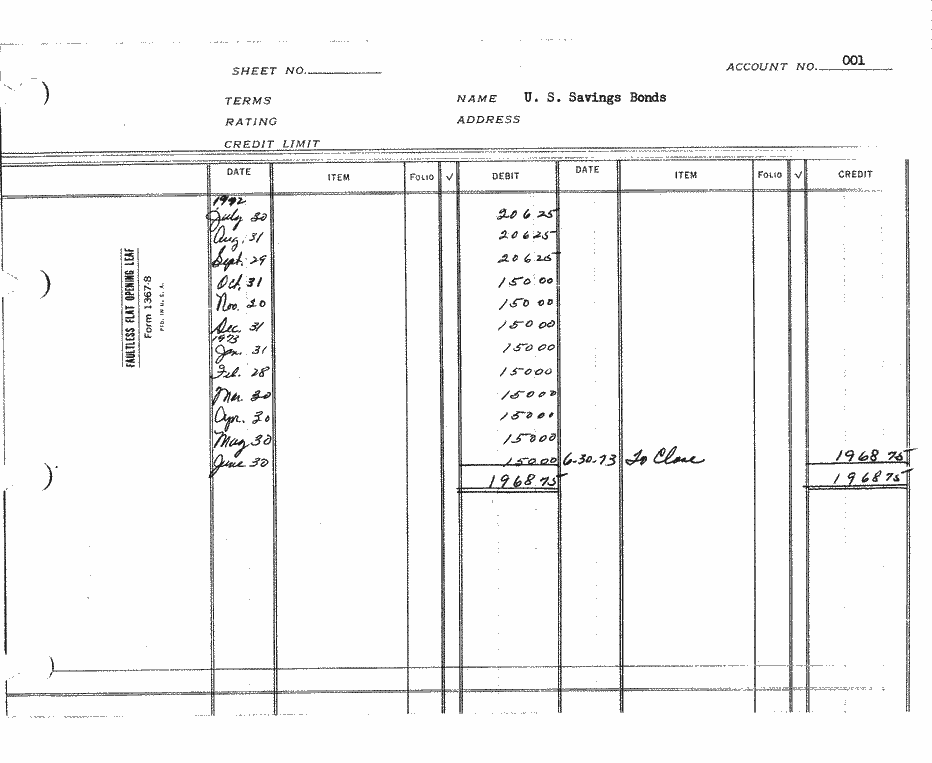 SHEET NO. ACCOUNT NO. 001
TERMS NAME U. S. Savings Bonds
RATING ADDRESS
CREDIT LIMIT
DATE ITEM FOLIO √ DEBIT DATE ITEM FOLIO √ CREDIT
1972
July 30 206 25
Aug. 31 206 25
Sept. 29 206 25
Oct. 31 150 00
Nov. 20 150 00
Dec. 31 150 00
1973
Jan. 31 150 00
Feb. 28 150 00
Mar. 30 150 00
Apr. 30 150 00
May 30 150 00
June 30 150 00 6-30-73 To Close 1968 75
1968 75 1968 75
FAULTLESS FLAT OPENING LEAF
Form 1367-8
PTD. IN U. S. A.